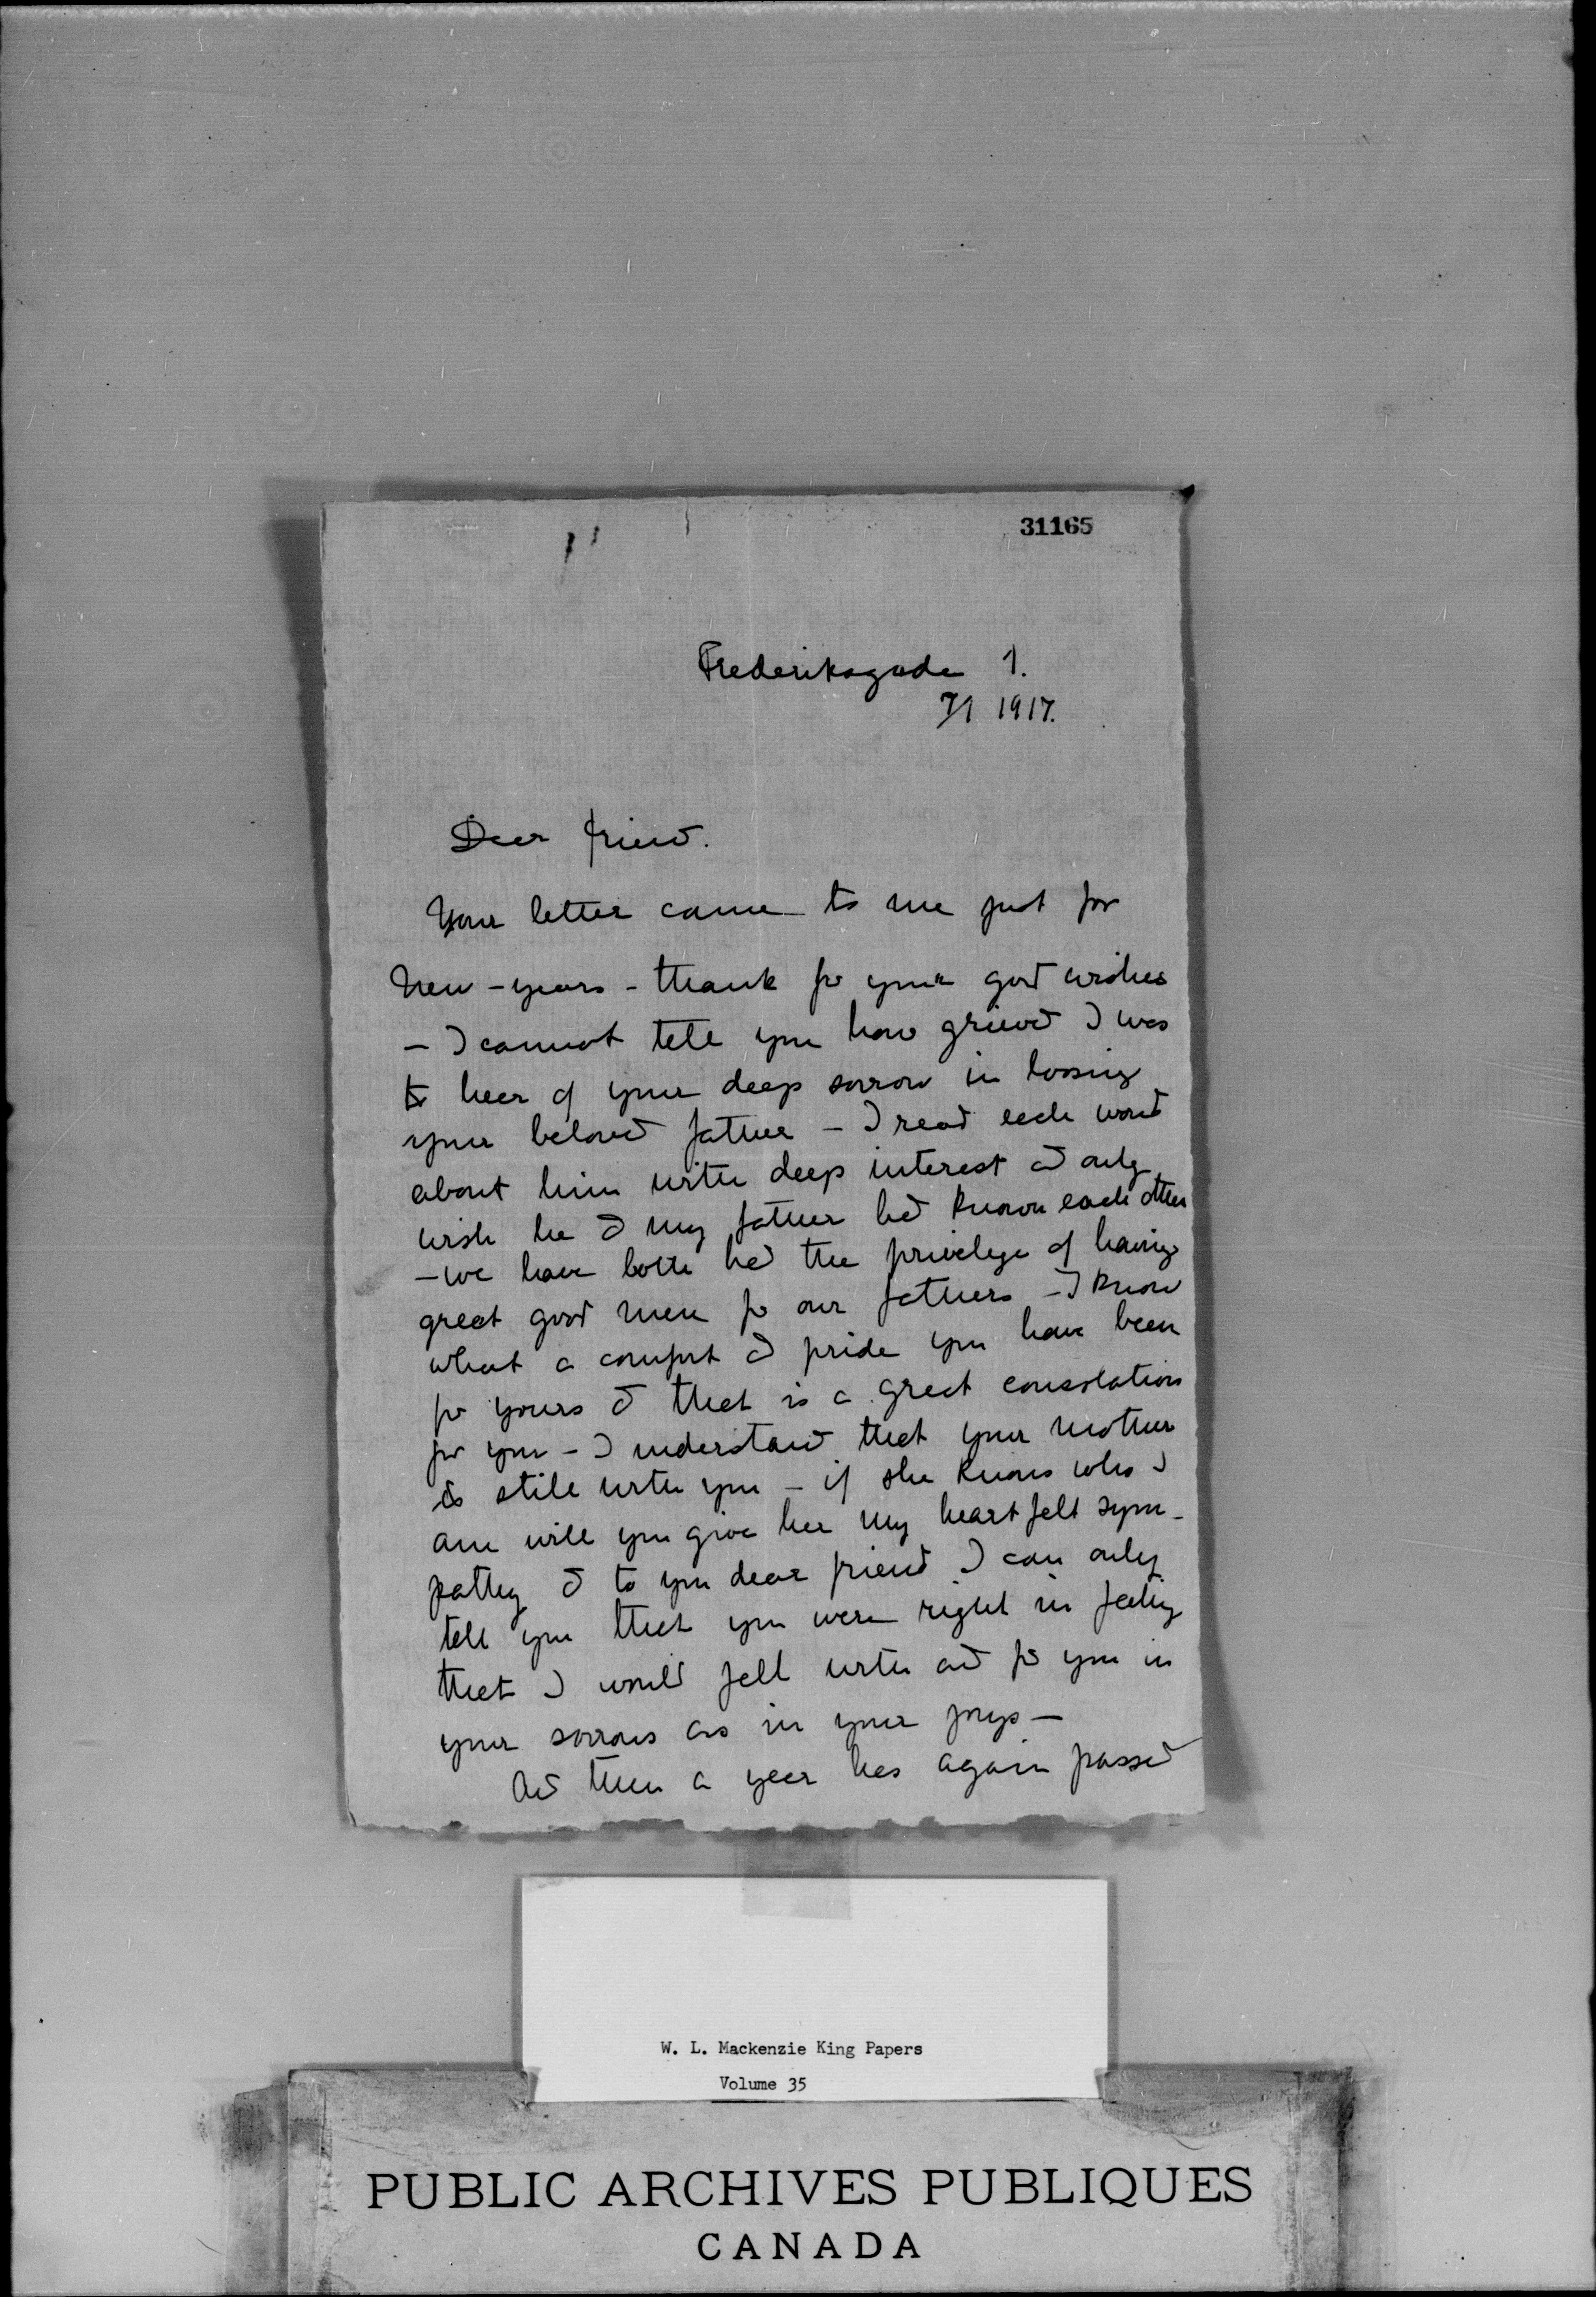 31165
Frederiksgade 1.
7/1 1917.
Dear friend.
Your letter came to me just for
New-years - thank for your good wishes
- I cannot tell you how grieved I was
to hear of your deep sorrow in loosing
your beloved father - I read each word
about him with deep interest and only
wish he & my father had known each other
- we have both had the privelege of having
great good men for our fathers - I know
what a comfort & pride you have been
for yours & that is a great consolation
for you - I understand that your mother
is still with you - if she knows who I
am will you give her my heart felt sym-
pathy & to you dear friend I can only
tell you that you were right in feeling
that I would fell with and for you in
your sorrows as in your joys -
And then a year has again passed
W. L. Mackenzie King Papers
Volume 35
PUBLIC ARCHIVES PUBLIQUES
CANADA